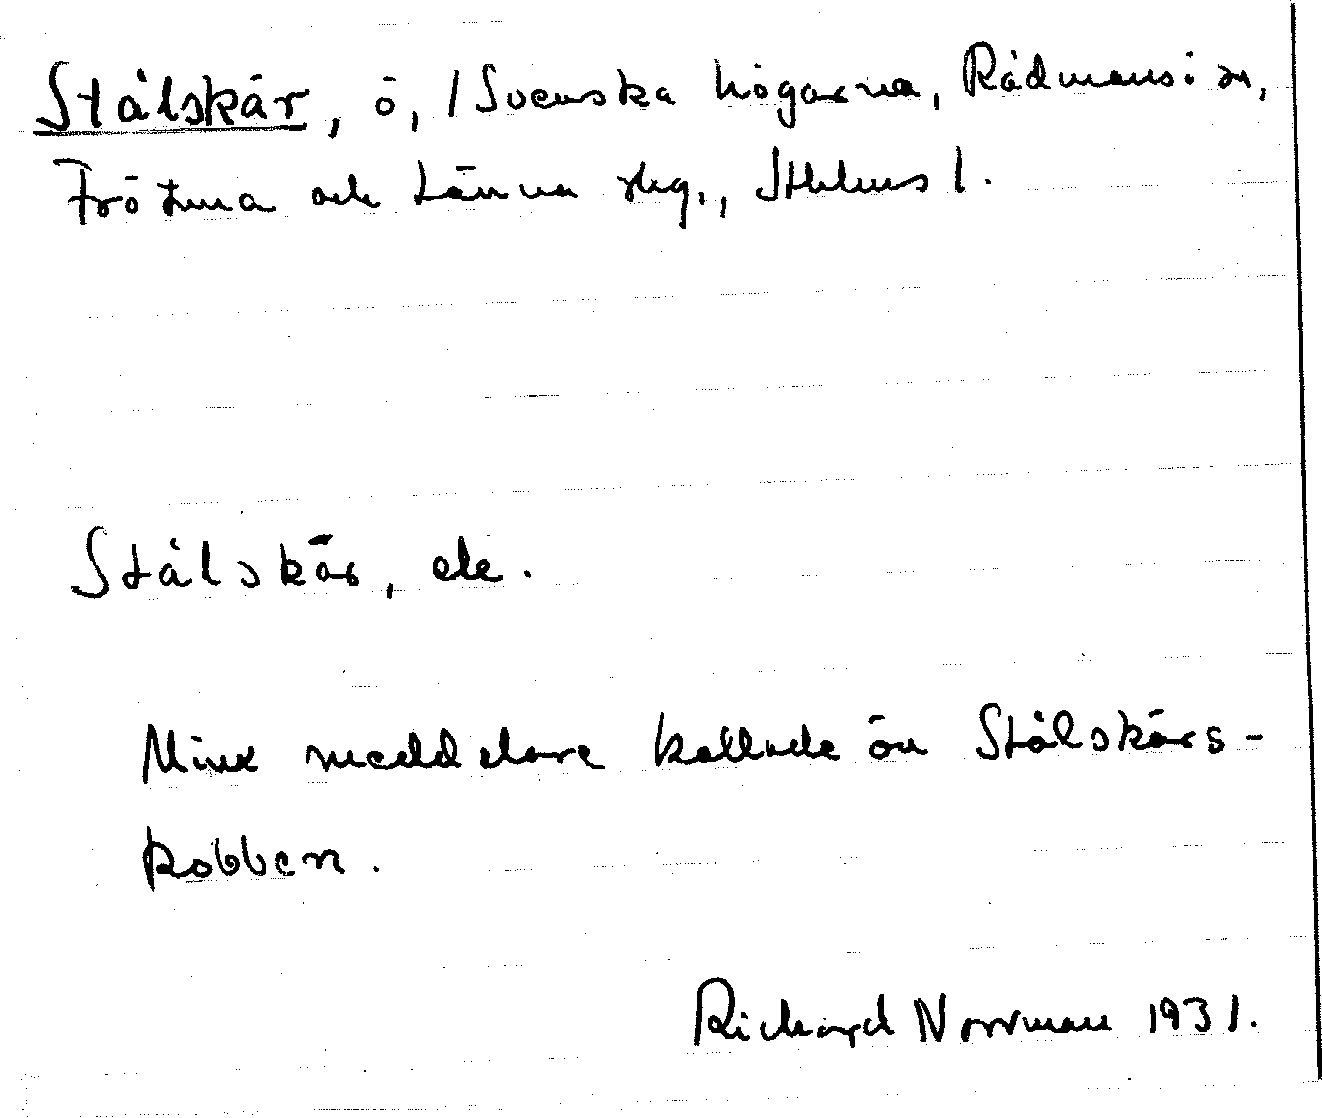 Stålskär, ö, / Svenska högarna, Rådmansö sn,
Frötuna och Länna skg., Sthlms l.
Stålskär, ele.
Mina meddelare kallade ön Stålskärs-
kobben.
Richard Norrman 1931.